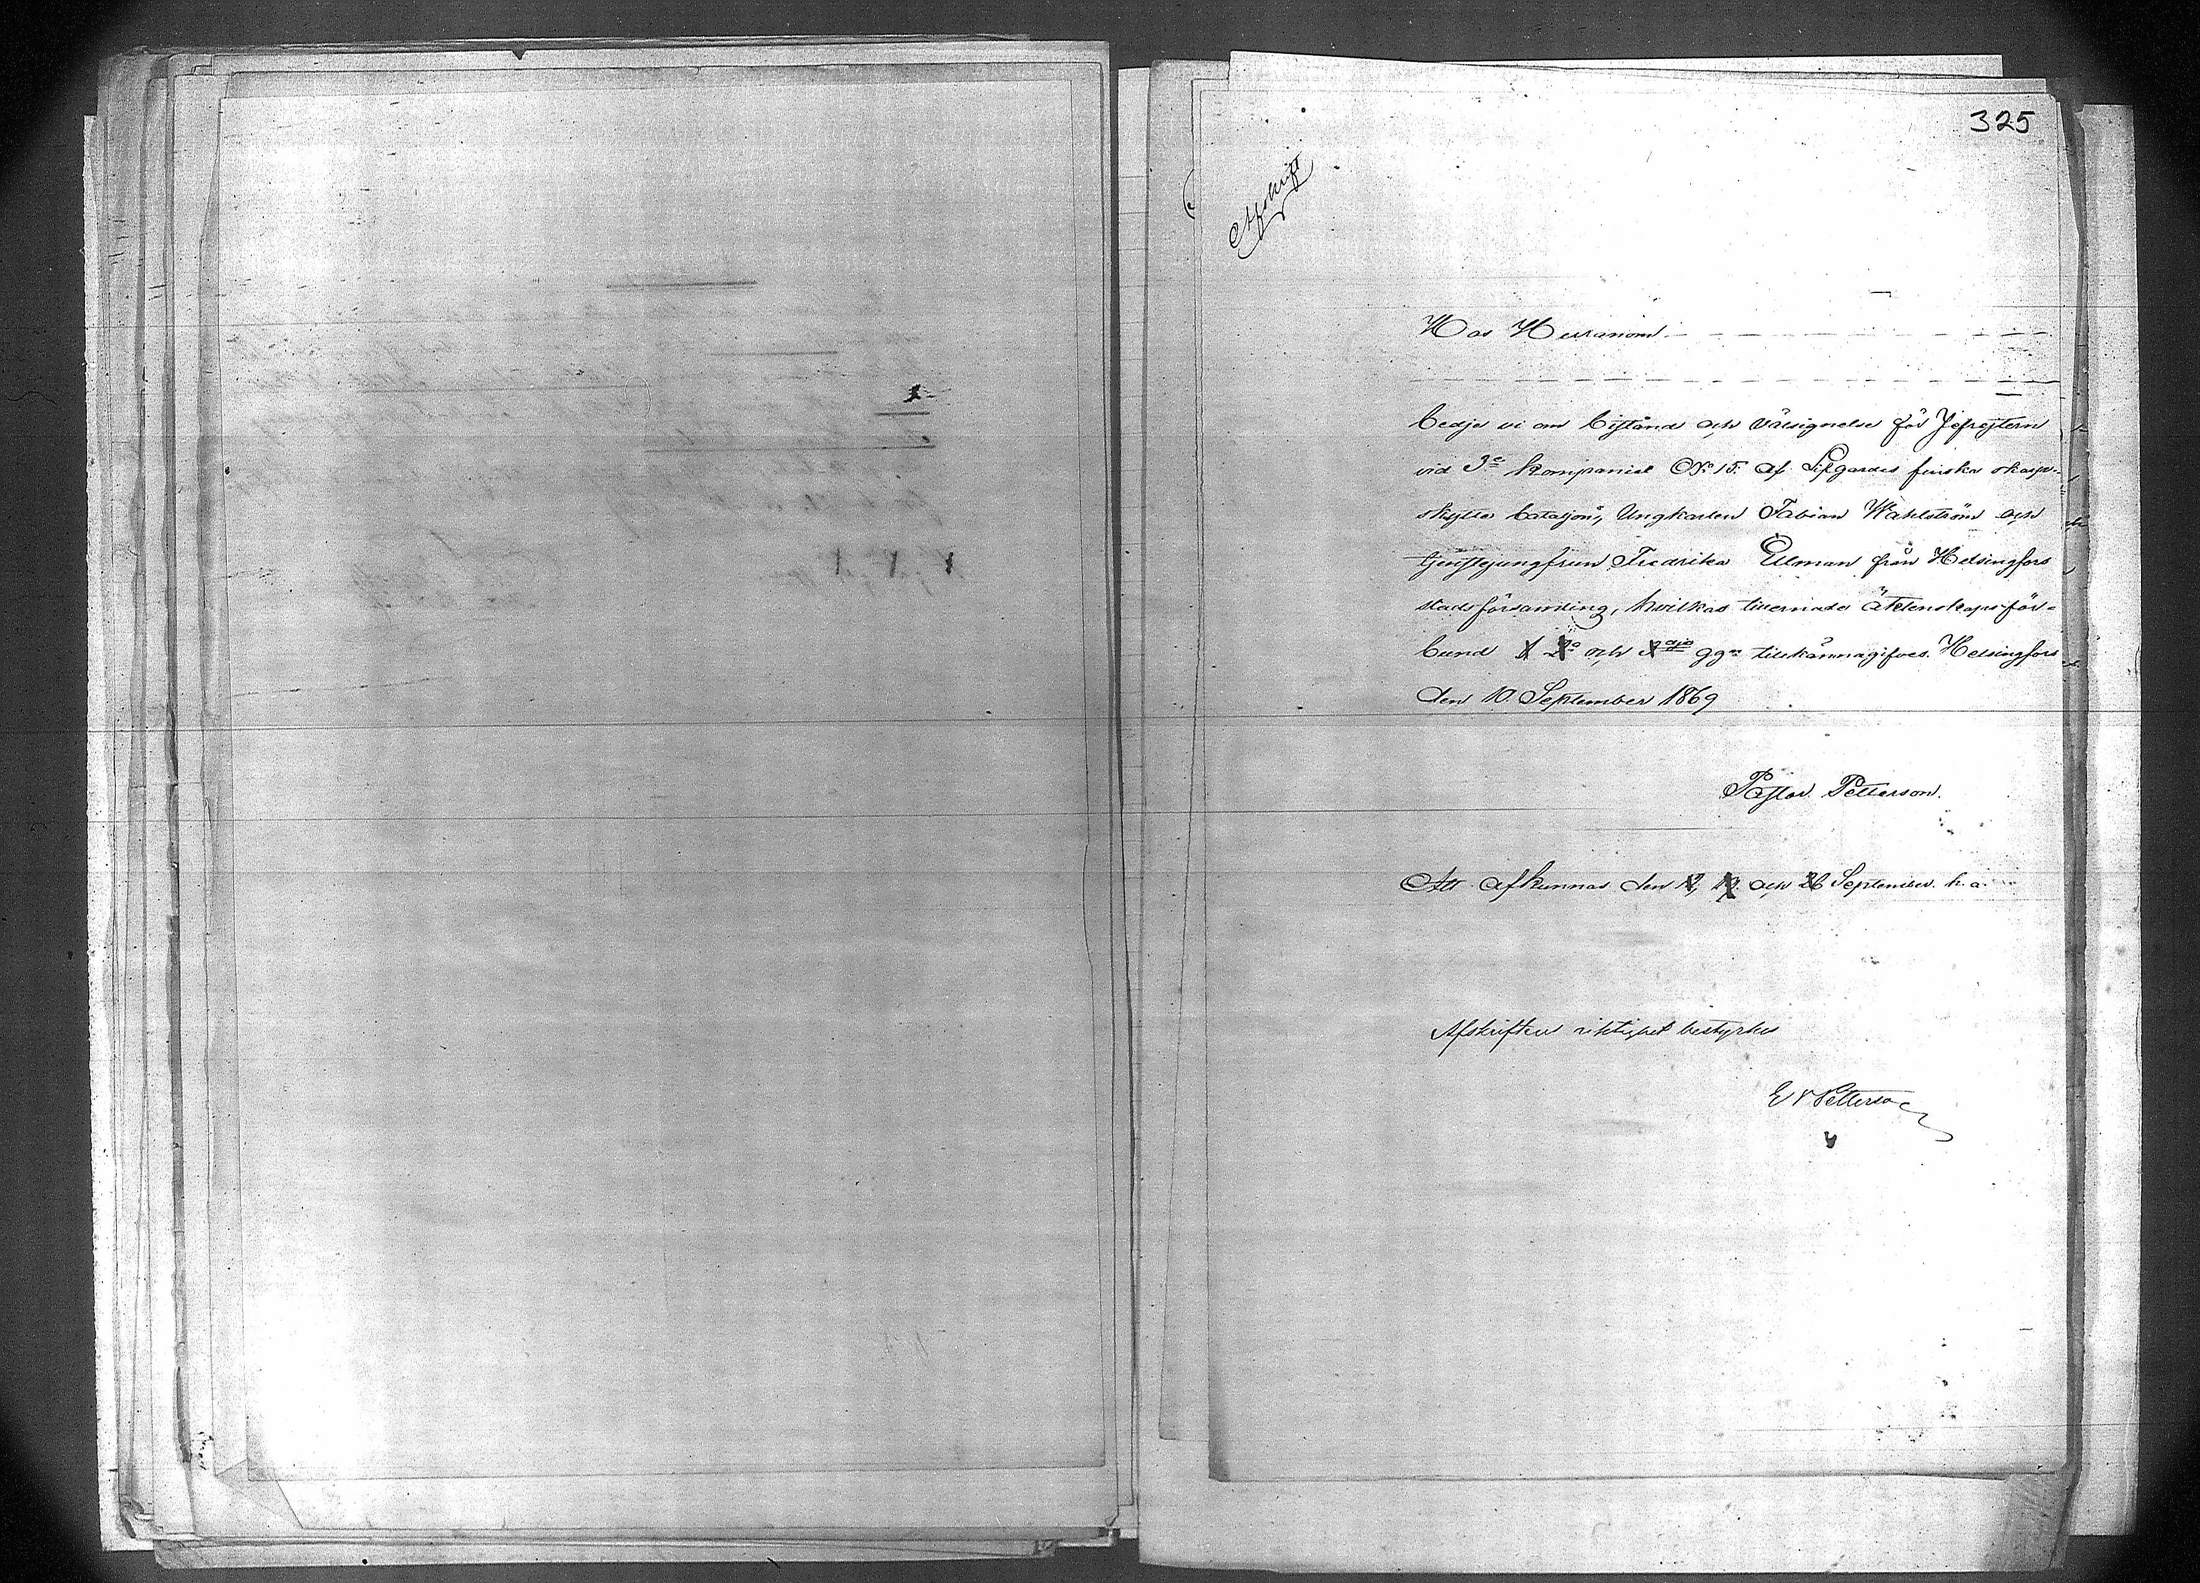 325
Afskrift
Hos Herranom — — — — — —
— — — — — — — — — —
bedje vi om bistånd och välsignelse för Jefrejtern
vid 3e kompaniet No 15. af Lifgardes finska skarp-
skytte bataljon, Ungkarlen Fabian Wahlström och
tjenstejungfrun Fredrika Ullman från Helsingfors
stadsförsamling, hvilkas tillernade äktenskaps för-
bund 1 2o och 3dje ggn tillkännagifves. Helsingfors
den 10. September 1869
Pastor Petterson.
Att afkunnas den 12, 19 och 26 September. h. a.
Afskriftens riktighet bestyrkes
E V Petterson